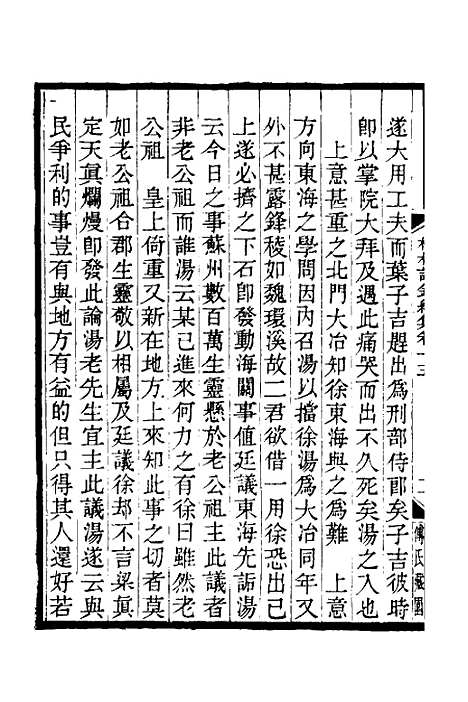 遂大用工夫而葉子吉趕出為刑部侍郎矣子吉彼時
卽以掌院大拜及遇此痛哭而出不久死矣湯之入也
上意甚重之北門大冶知徐東海與之為難　上意
方向東海之學問因內召湯以擋徐湯為大冶同年又
外不甚露鋒稜如魏環溪故二君欲借一用徐恐出己
上遂必擠之下石卽發動海關事值廷議東海先詬湯
云今日之事蘇州數百萬生靈懸於老公祖主此議者
非老公祖而誰湯云某已進來何力之有徐曰雖然老
公祖　皇上倚重又新在地方上來知此事之切者莫
如老公祖合郡生靈敬以相屬及廷議徐却不言梁眞
定天眞爛熳卽發此論湯老先生宜主此議湯遂云與
民爭利的事豈有與地方有益的但只得其人還好若
二
傅氏